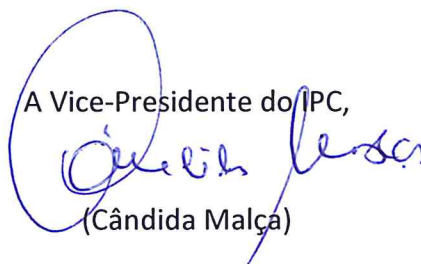 A Vice-Presidente do IPC,
Cândida Malça
(Cândida Malça)